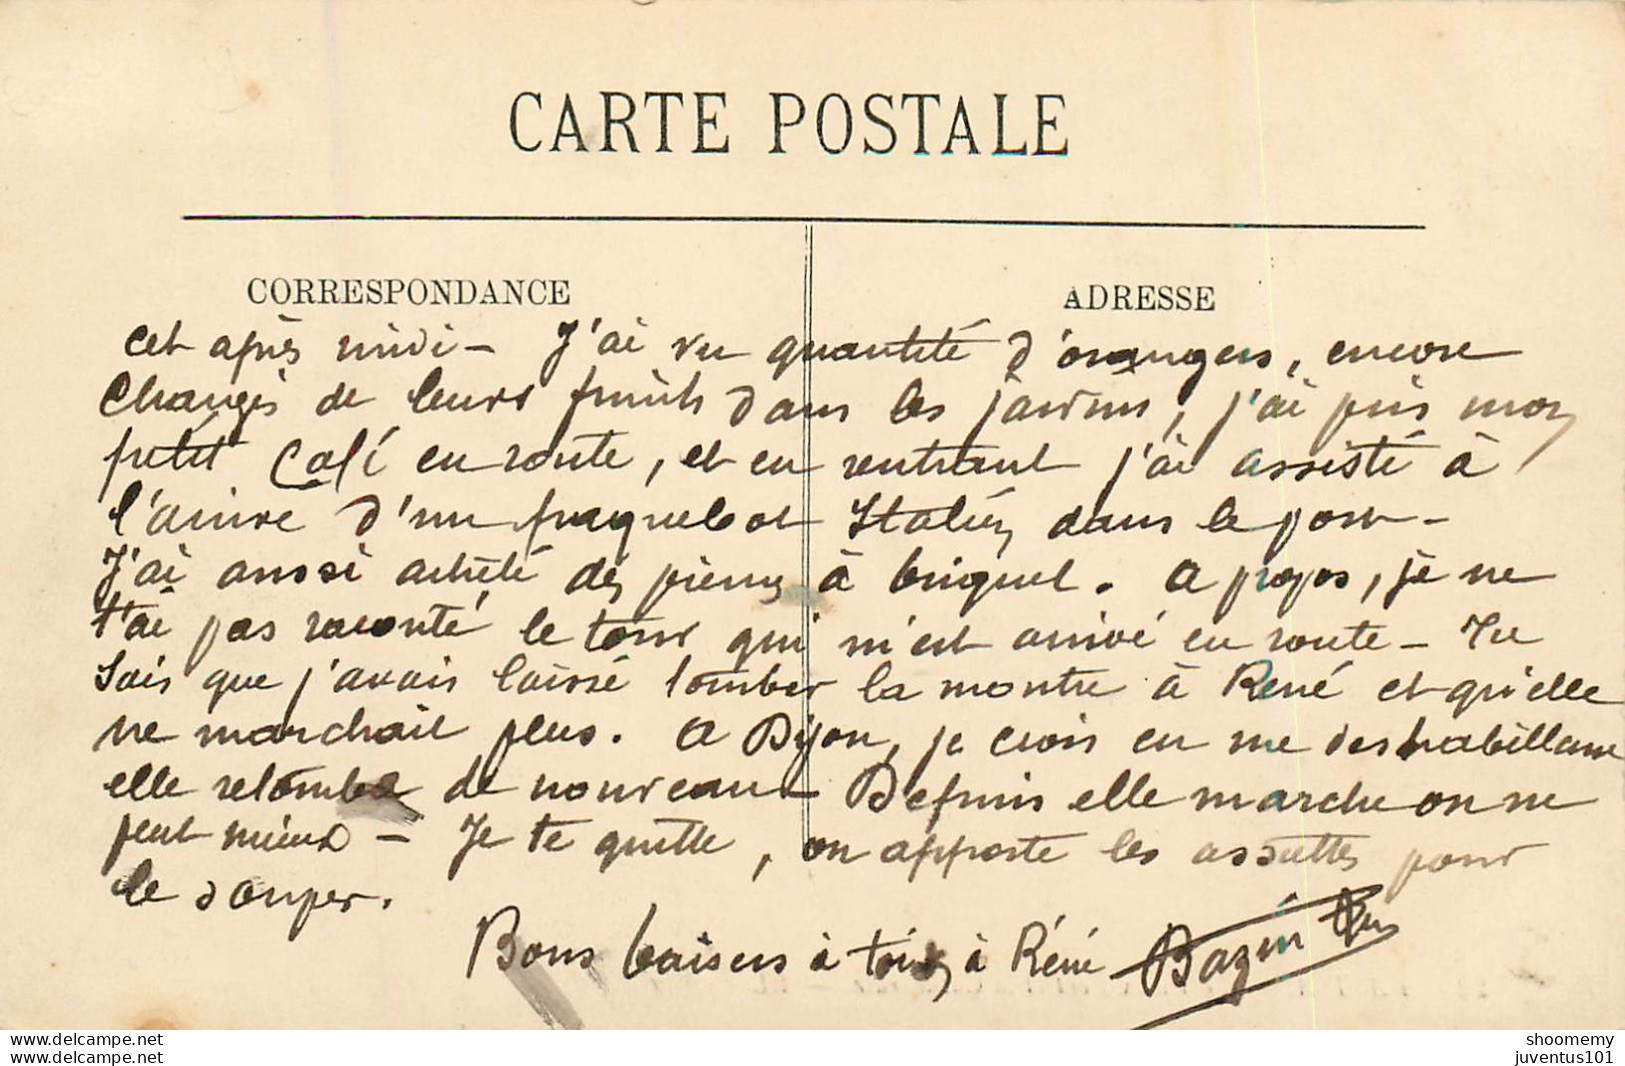 CARTE POSTALE
CORRESPONDANCE
ADRESSE
cet après midi - J'ai vu quantité d'orangers, encore
Changés de leurs fruits dans les jardins, j'ai pris mon
petit Café en route, et en rentrant j'ai assisté à
l'arrivée d'un paquebot Italien dans le port -
J'ai aussi acheté des pierres à briquet. A propos, je ne
t'ai pas raconté le tour qui m'est arrivé en route - Tu
Sais que j'avais laissé tomber la montre à René et qu'elle
ne marchait plus. A Dijon, je crois en me deshabillant
elle retomba de nouveau - Depuis elle marche on ne
peut mieux - Je te quitte, on apporte les assiettes pour
le souper.
Bons baisers à toi, à Réné Bazin
shoomemy
www.delcampe.net
juventus101